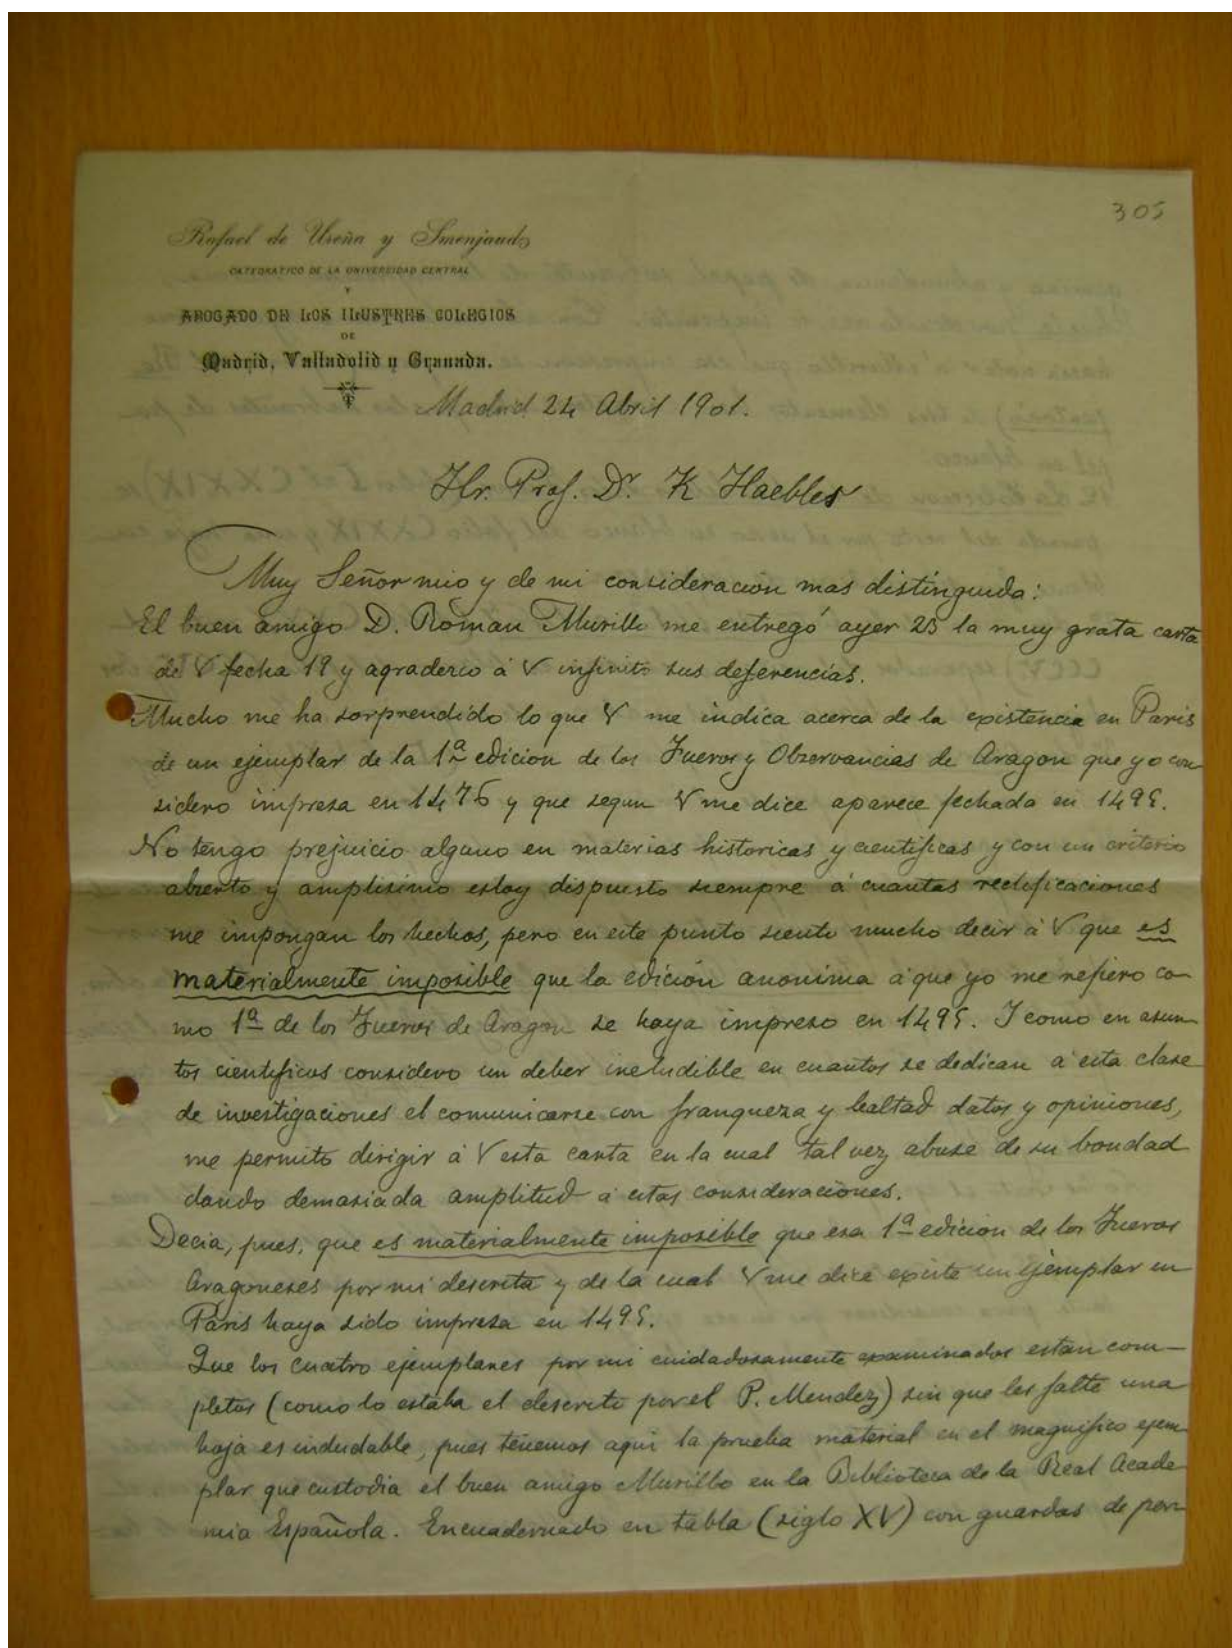 305
Rafael de Ureña y Smenjaud
CATEDRATICO DE LA UNIVERSIDAD CENTRAL
Y
ABOGADO DE LOS ILUSTRES COLEGIOS
DE
Madrid, Valladolid y Granada.
Madrid 24 Abril 1901.
Hr. Prof. Dr. K Haebler
Muy Señor mio y de mi consideración mas distinguida:
El buen amigo D. Roman Murillo me entregó ayer 23 la muy grata carta
de V fecha 19 y agradezco á V infinito sus deferencias.
Mucho me ha sorprendido lo que V me indica acerca de la existencia en Paris
de un ejemplar de la 1ª edicion de los Fueros y Observancias de Aragon que yo con
sidero impresa en 1476 y que segun V me dice aparece fechada en 1495.
No tengo prejuicio alguno en materias historicas y cientificas y con un criterio
abierto y amplisimo estoy dispuesto siempre á cuantas rectificaciones
me impongan los hechos, pero en este punto siento mucho decir á V que es
materialmente imposible que la edición anonima á que yo me refiero co-
mo 1ª de los Fueros de Aragon se haya impreso en 1495. I como en asun
tos cientificos considero un deber ineludible en cuantos se dedican á esta clase
de investigaciones el comunicarse con franqueza y lealtad datos y opiniones,
me permito dirigir á V esta carta en la cual tal vez abuse de su bondad
dando demasiada amplitud á estas consideraciones.
Decia, pues, que es materialmente imposible que esa 1ª edicion de los Fueros
Aragoneses por mi descrita y de la cual V me dice existe un ejemplar en
Paris haya sido impresa en 1495.
Que los cuatro ejemplares por mi cuidadosamente examinados estan com-
pletos (como lo estaba el descrito por el P. Mendez) sin que les falte una
hoja es indudable, pues tenemos aqui la prueba material en el magnifico ejem
plar que custodia el buen amigo Murillo en la Biblioteca de la Real Acade
mia Española. Encuadernado en tabla (siglo XV) con guardas de per